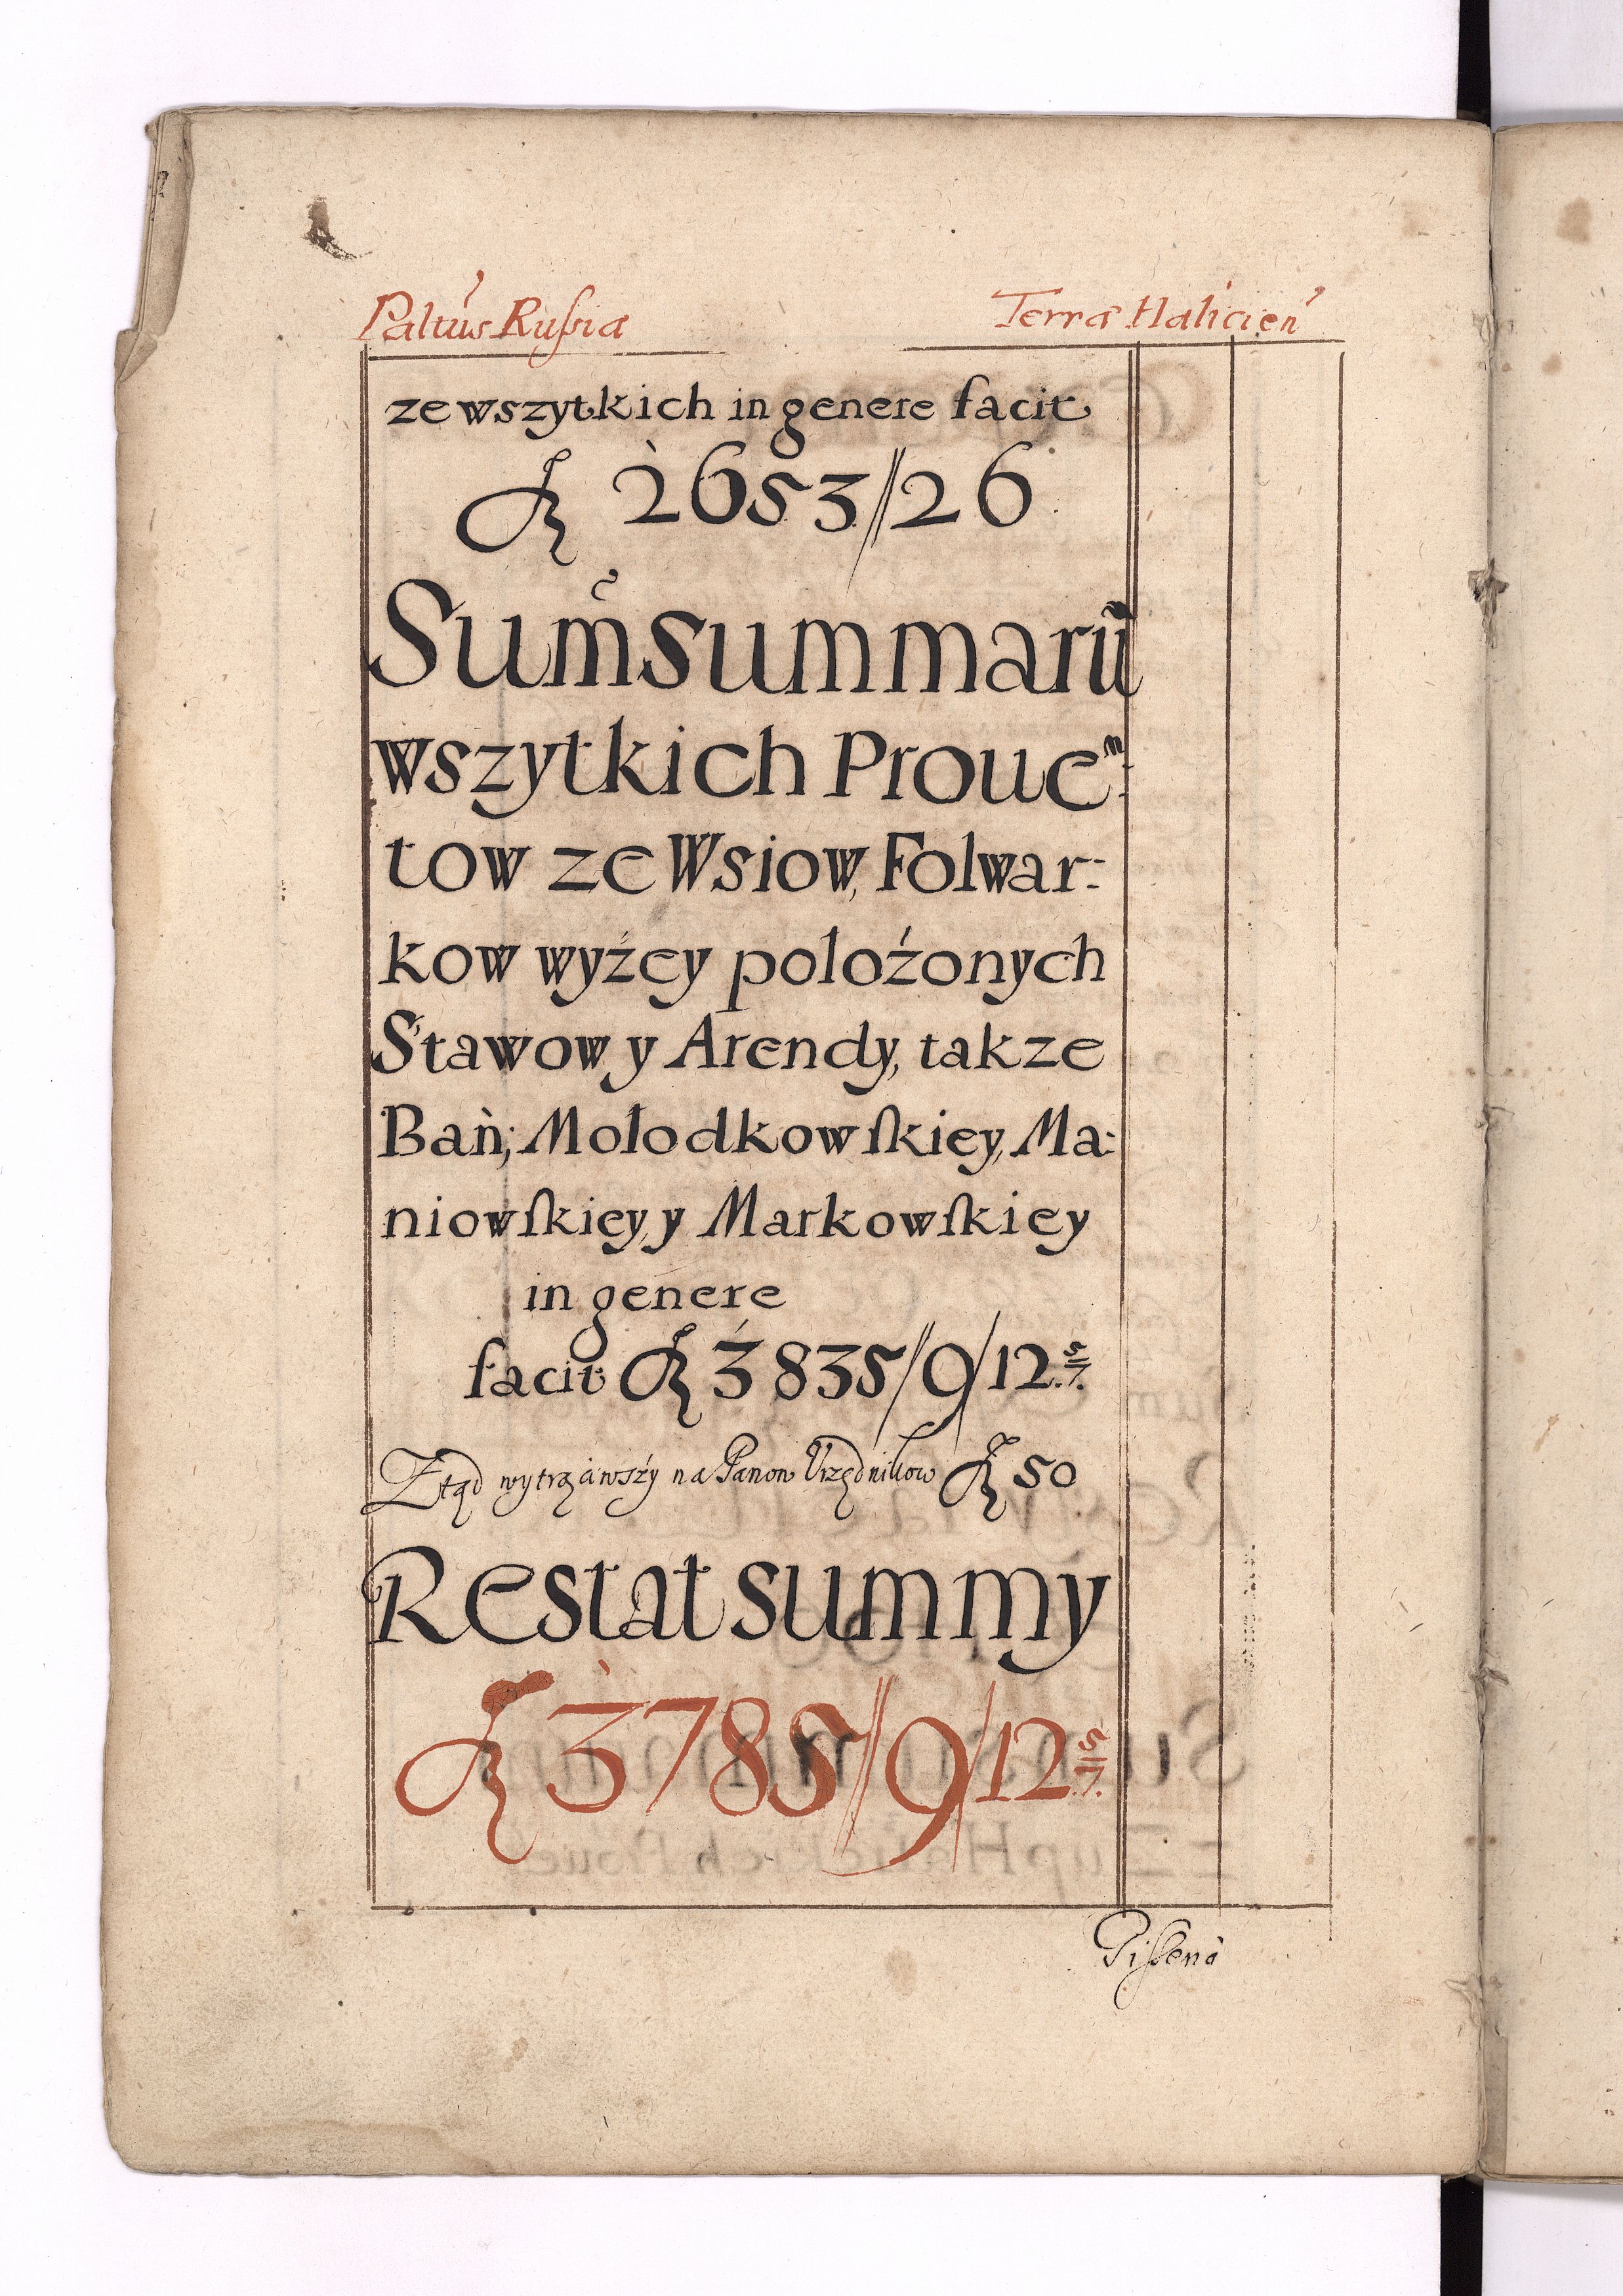 Paltus Rußia Terra Halicien
ze wszytkich in genere facit
fl 2653//26
Sum̃ Summarÿ
wszytkich Prouen-
tow ze Wsiow, Folwar-
kow wyżey położonych
Stawow y Arendy, takze
Bań; Mołodkowſkiey, Ma-
niowſkiey, y Markowſkiey
in genere
facit fl 3835//9/12 5/7.
Ztąd wytrząwszy na Panow Urzędnikow fl 50
Restat summy
fl 3785//9/12 5/7.